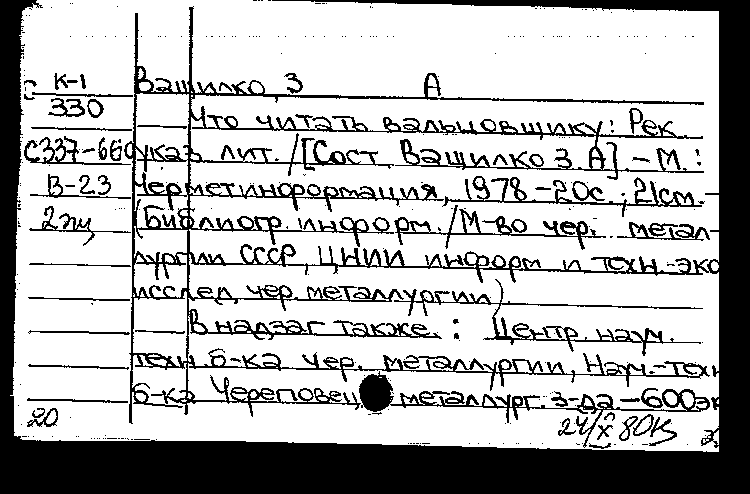 К-1 Ващилко, З А
330 Что читать вальцовщику: Рек
С337-66 указ. лит. /[Сост. Ващилко З. А]. - М.:
В-23 Черметинформация, 1978.-20с.; 21см.-
2 эк (Библиогр. информ. /М-во чер. метал-
лургии СССР, ЦНИИ информ и техн.-эко
исслед. чер. металлургии).
В надзаг также: Центр. науч.
техн. б-ка чер. металлургии, Науч.-техн
б-ка Череповец. металлург. з-да -600эк
20 24/X 80